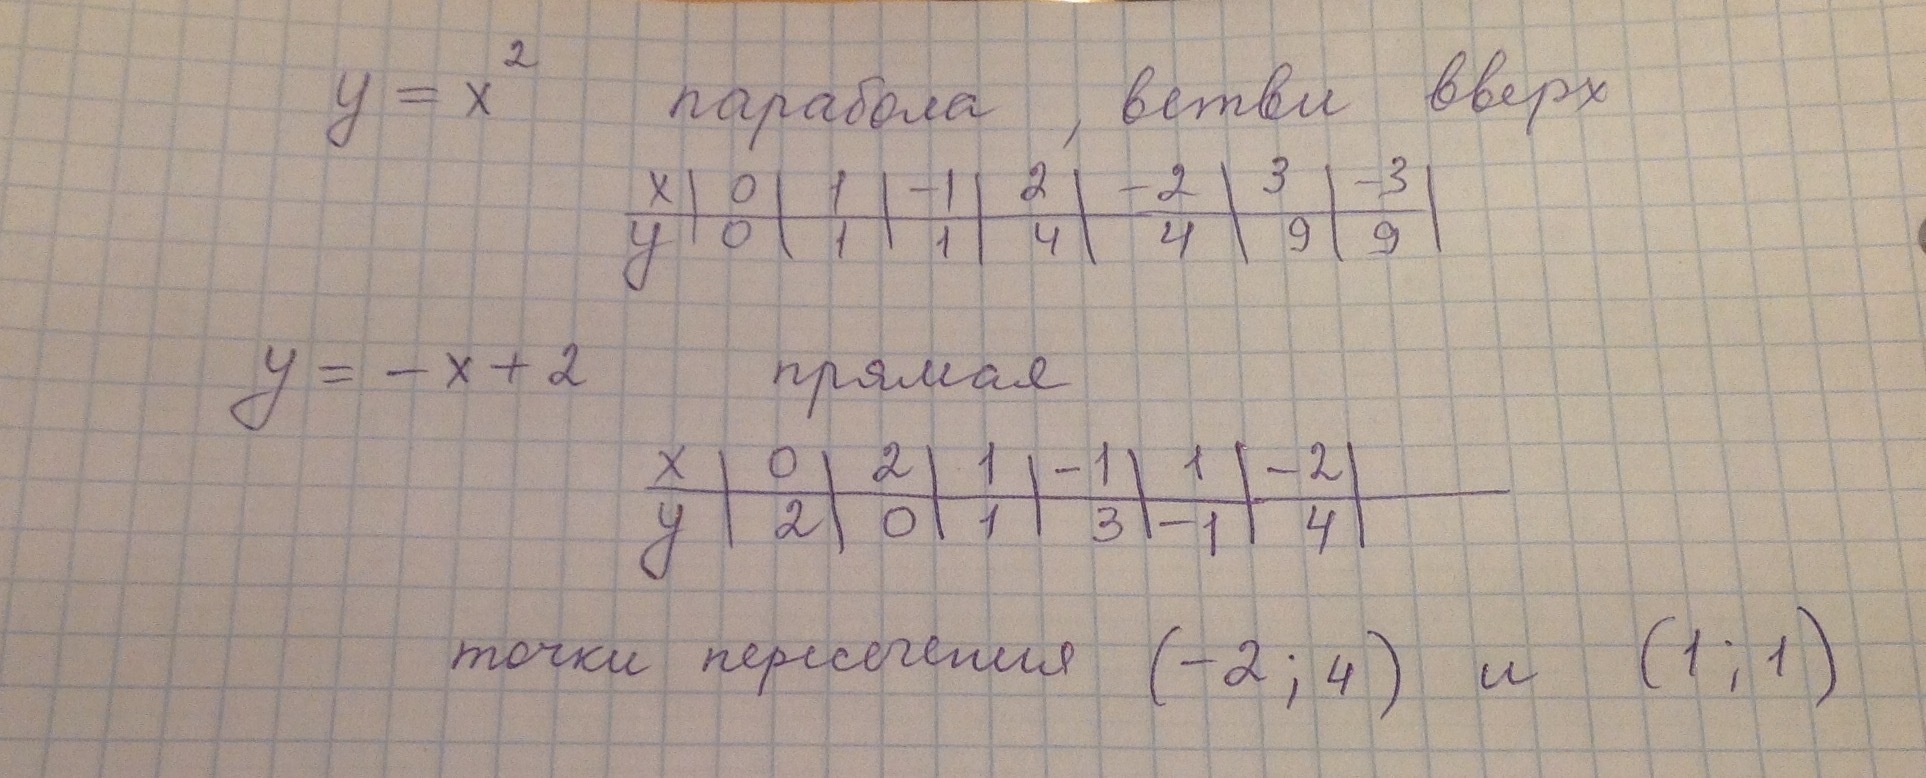 y = x² парабола, ветви вверх
x | 0 | 1 | -1 | 2 | -2 | 3 | -3 |
y | 0 | 1 | 1 | 4 | 4 | 9 | 9 |
y = -x + 2 прямая
x | 0 | 2 | 1 | -1 | 1 | -2 |
y | 2 | 0 | 1 | 3 | -1 | 4 |
точки пересечения (-2; 4) и (1; 1)